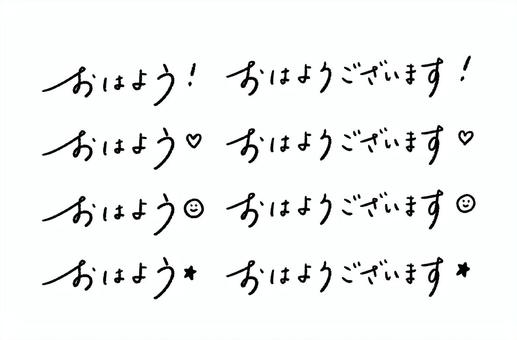 おはよう! おはようございます!
おはよう♡ おはようございます♡
おはよう☺ おはようございます☺
おはよう★ おはようございます★